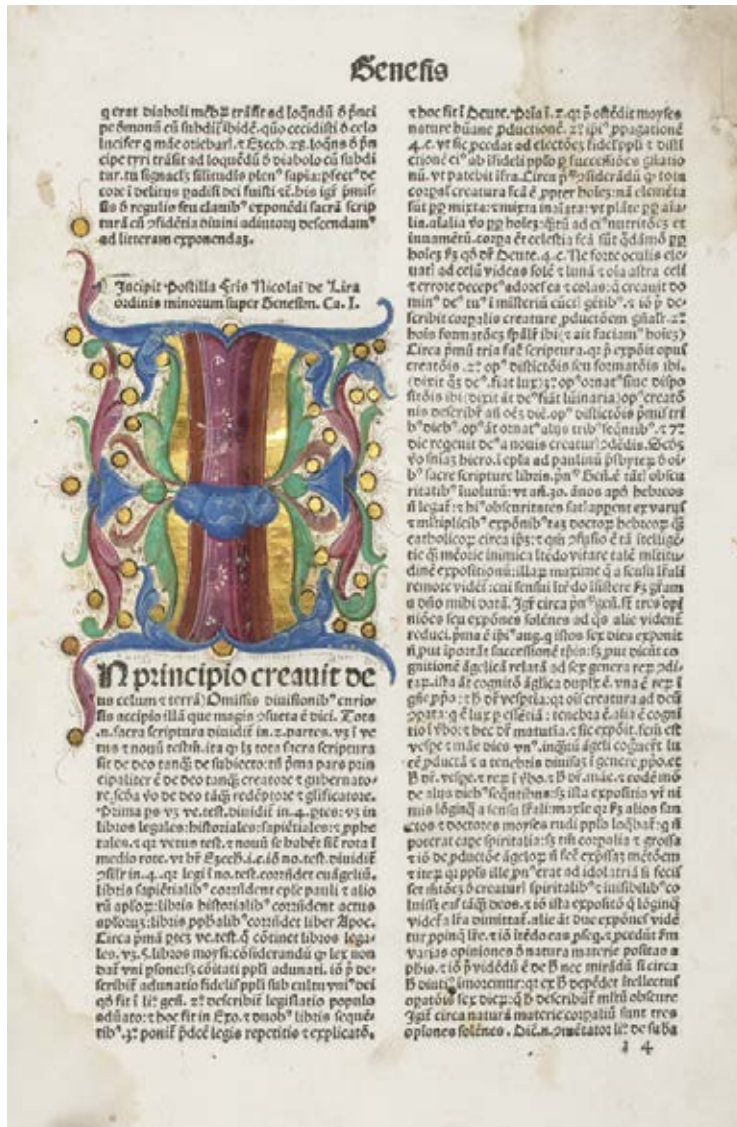 Genesis
q erat diaboli trāsit ad loqñdū ḋ
pe demonū cū ibidē. quo cecidisti ḋ celo
lucifer q mãe oriebarl. ⁊ Ezech. 28. loqñs ḋ
cipe tyri trāsit ad loquēdū ḋ diabolo cū subdi
tur. tu signaclꝫ silitudis plenꝰ sapīa: ꝑfectꝰ de
core ī delitus padisi dei fuisti ⁊c. his igr̄
sis ḋ regulis seu clauibꝰ exponēdi sacrā scrip
turā cū diuini adiutorij descendamꝰ
ad litteram exponendaꝫ.
Incipit Postilla fr̄is Nicolai de Lira
ordinis minorum super Genesim. Ca. I.
IN principio creauit de
us celum ⁊ terrā) Omissis diuisionibꝰ curio
sis accipio illā que magis ↄsueta ē dici. Tota
.n. sacra scriptura diuidit̄ in .2. partes. vꝫ ī ve
tus ⁊ nouū testm̄. ita ꝙ lꝫ tota sacra scriptura
sit de deo tanq̄ȝ de subiecto: tn̄ pma pars prin
cipaliter ē de deo tanq̄ȝ creatore ⁊ gubernato
re. scḋa v̄o de deo tāq̄ȝ redēptore ⁊ glificatore.
Prima ps vꝫ ve. test. diuidit̄ in .4. ptes: vꝫ in
libros legales: historiales: sapiētiales: ⁊ pphe
tales. ⁊ qꝛ vetus test. ⁊ nouū se habēt sic̄ rota ī
medio rote. vt hr̄ Ezech. i. c. iō no. test. diuidit̄
ↄsilr̄ in .4. qꝛ legi ī no. test. corrn̄det euāgeliū.
libris sapiētialibꝰ corrn̄dent eple pauli ⁊ alio
rū aploꝝ: libris historialibꝰ corrn̄dent actus
aploruꝫ: libris pphalibꝰ corrn̄det liber Apoc.
Circa pmā ptē ve. test. q ↄtinet libros lega
les. vꝫ .5. libros moysi: cōsiderandū ꝙ lex non
dat̄ vni psone: sꝫ cōitati ppli adunati. iō de
scribit̄ adunatio fidelis ppli sub cultu vniꝰ dei
qḋ fit ī li. geñ. 2ᵒ describit̄ legislatio populo
adūato: ⁊ hoc fit in Exo. ⁊ duobꝰ libris sequē
tibꝰ. 3ᵒ ponit̄ pdcē legis repetitio ⁊ explicatō.
⁊ hoc fit ī Deute. Pria ī .2. qꝛ p ostēdit moyses
nature hūane pductionē. 2ᵒ ipiꝰ ppagationē
4. c. ⁊ sic pcedat ad electōeꝫ fidelis ppli ⁊ disti
ctionē eiꝰ ab īfideli pplo successiōeꝫ gñatio
nū. vt patebit īfra. Circa ↄsiderādū ꝙ tota
corpal creatura fcā ē ppter hoīeꝫ: nā elemēta
sūt pp mixta: ⁊ mixta inaīata: vt plāte pp aīa
lia. aīalia v̄o pp hoīeꝫ: ad eiꝰ nutritōeꝫ et
iuuamētū. corpa ēt celestia fcā sūt qdāmō pp
hoīeꝫ qḋ dr̄ Deute. 4. c. Ne forte oculis ele
uatꝭ ad celū videas solē ⁊ lunā ⁊ oīa astra celi
⁊ errore deceptꝰ adores ea ⁊ colas: q creauit do
minꝰ deꝰ tuꝰ ī misteriū cūctꝭ gētibꝰ. ⁊ iō p de
scribit corpalis creature pductōem gñalr̄. 2ᵒ
hoīs formatōeꝫ spālr̄ ibi (⁊ ait faciamꝰ hoīeꝫ)
Circa pmū tria fac̄ scriptura. qꝛ p expōit opus
creatōis. 2ᵒ opꝰ distictōis seu formatōis ibi.
(dixit q̄ȝ deꝰ. fiat lux) 3ᵒ opꝰ ornatꝰ siue dispo
sitōis ibi (dixit āt deꝰ fiāt lūinaria) opꝰ creatō
nis describit̄ añ oēꝫ diē. opꝰ distictōis pmis tri
bꝰ diebꝰ. opꝰ āt ornatꝰ alijs tribꝰ seqn̄tibꝰ. ⁊ 7ᵒ
die requieuit deꝰ a nouis creaturꝭ ↄdēdis.
v̄o sn̄iaꝫ hiero. ī epla ad paulinū psbyteꝝ ḋ oī
bꝰ sacre scripture libris. Geñ. ē tātꝭ obscu
ritatibꝰ īuolutū: vt añ .30. ānos apḋ hebreos
n̄ legat̄: ⁊ hiꝰ obscuritates satꝭ appent ex varijs
⁊ mltiplicibꝰ expōnibꝰ taꝫ doctoꝝ hebreoꝝ q̄ȝ
catholicoꝝ circa ipꝫ: ⁊ qm̄ ↄfusio ē tā ītellige
tie q̄ȝ mēorie inimica ītēdo vitare talē mltitu
dinē expositionū: illaꝝ maxime q a sensu lr̄ali
remote vidēt̄: cui sensui ītēdo īsistere gr̄am
a dn̄o mihi datā. Igr̄ circa geñ. st̄ tres opī
niōes seu expōnes solēnes ad qs alie vident̄
reduci. pma ē ipiꝰ aug. q istos sex dies exponit
n̄ put īportāt successionē tpis: sꝫ put dicūt co
gnitionē āgelicā relatā ad sex genera reꝝ ↄdi
taꝝ. ista āt cognitō āglica duplx ē. vna ē reꝝ ī
gñe ppo: ⁊ dr̄ vesptia: qꝛ oīs creatura ad deū
ↄpata: q ē lux p essētiā: tenebra ē. alia ē cogni
tio ī v̄bo: ⁊ hec dr̄ matutīa. ⁊ sic expōit. fcm̄ est
vespe ⁊ māe dies vnꝰ. inq̄tū āgeli cogcūt lu
cē pductā ⁊ a tenebris diuisaꝫ ī genere ppo. et
dr̄. vespe. ⁊ reꝝ ī v̄bo. ⁊ dr̄. māe. ⁊ eodē mō
de alijs diebꝰ seqn̄tibus: sꝫ ista expositio vr̄ ni
mis lōginq̄ a sensu lr̄ali: maxīe qꝛ alios san
ctos ⁊ doctores moyses rudi pplo loqbat̄: q n̄
poterat cape spiritalia: sꝫ tm̄ corpalia ⁊ grossa
⁊ iō de pductōe āgeloꝝ n̄ fec̄ expssaꝫ mētōem
⁊ iteꝝ qꝛ pplꝰ ille pnꝰ erat ad idolatriā si fecis
set mtōeꝫ ḋ creaturꝭ spiritalibꝰ ⁊ īuisibilibꝰ co
luisset eas tāq̄ȝ deos. ⁊ iō ista expositō q lōginq̄
videt̄ a lr̄a dimittat̄. alie āt due expōneꝫ vidē
tur ppinq lr̄e. ⁊ iō ītēdo eas pseq. ⁊ pcedūt
varias opiniones ḋ natura materie positas a
phis. ⁊ iō ꝑvidēdū ē de nec mirādū si circa
diutiꝰ īmoremur: qꝛ ex depēdet ītellectus
opatōis sex dieꝝ: q describūt̄ mltū obscure
Igr̄ circa naturā materie corpaliū sunt tres
opīones solēnes. Diē. n. ↄmētator li. de suba
i 4